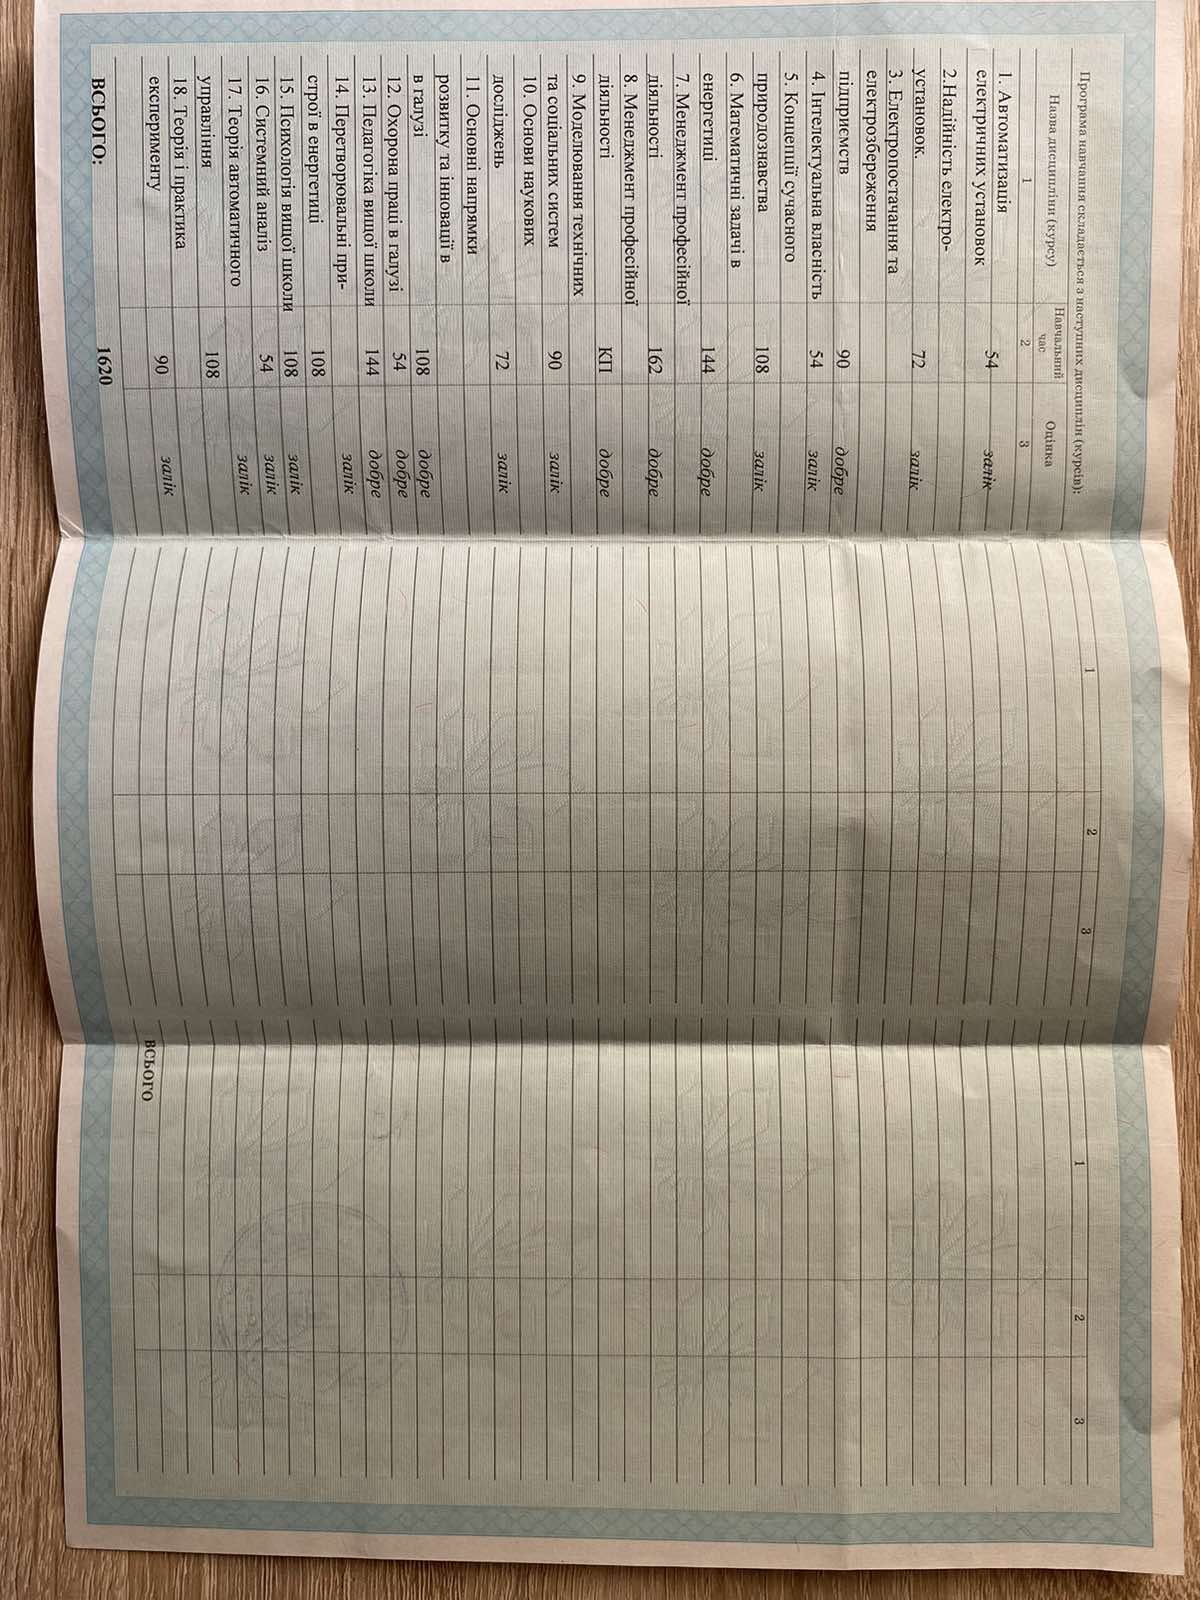 Програма навчання складається з наступних дисциплін (курсів):
Назва дисципліни (курсу) Навчальний час Оцінка
1 2 3
1. Автоматизація
електричних установок 54 залік
2.Надійність електро-
установок. 72 залік
3. Електропостачання та
електрозбереження
підприємств 90 добре
4. Інтелектуальна власність 54 залік
5. Концепції сучасного
природознавства 108 залік
6. Математичні задачі в
енергетиці 144 добре
7. Менеджмент професійної
діяльності 162 добре
8. Менеджмент професійної
діяльності КП добре
9. Моделювання технічних
та соціальних систем 90 залік
10. Основи наукових
досліджень 72 залік
11. Основні напрямки
розвитку та інновації в
в галузі 108 добре
12. Охорона праці в галузі 54 добре
13. Педагогіка вищої школи 144 добре
14. Перетворювальні при-
строї в енергетиці 108 залік
15. Психологія вищої школи 108 залік
16. Системний аналіз 54 залік
17. Теорія автоматичного
управління 108 залік
18. Теорія і практика
експерименту 90 залік
ВСЬОГО: 1620
1 2 3
1 2 3
ВСЬОГО